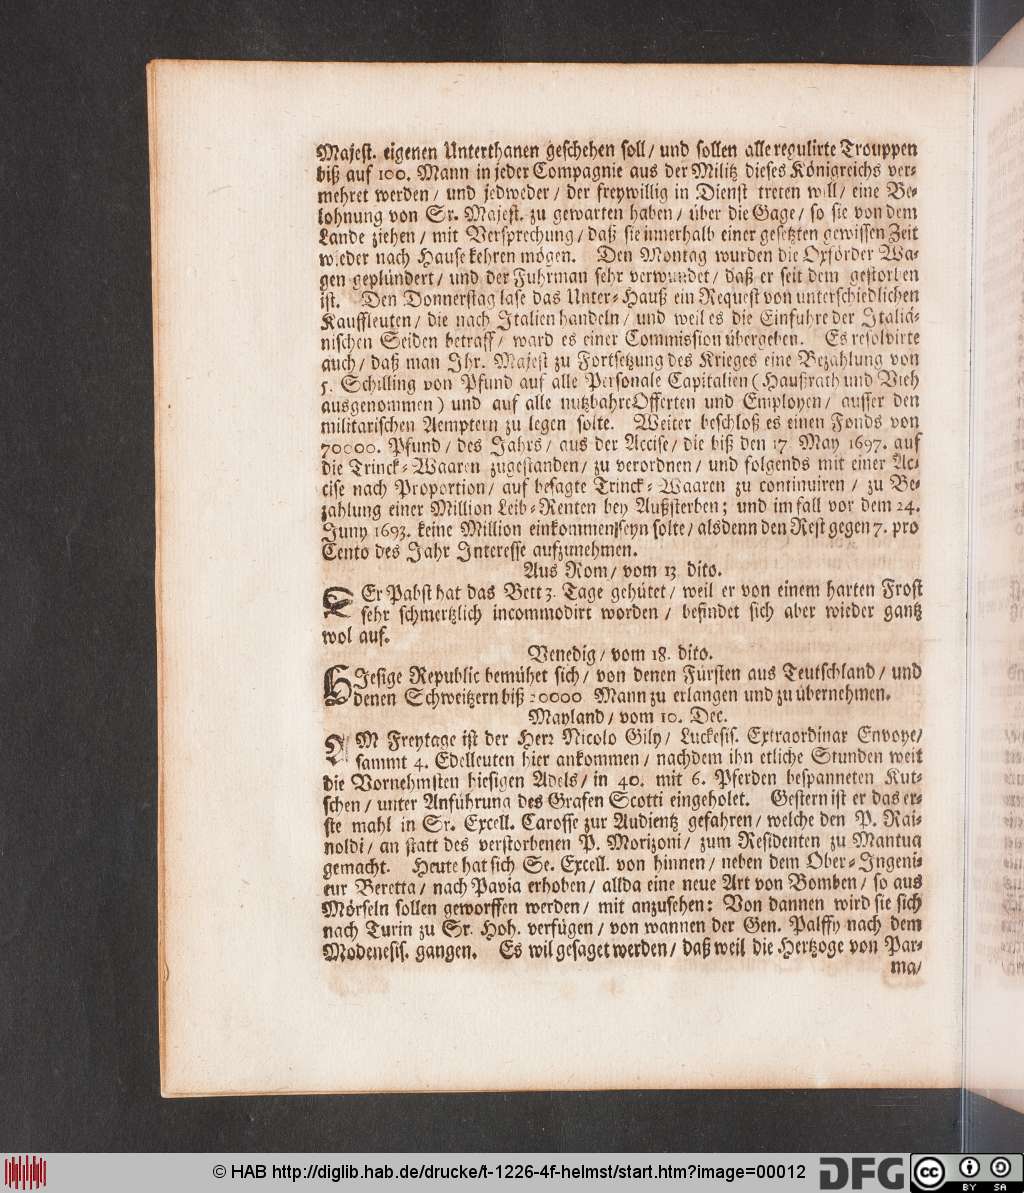 Majeſt. eigenen Unterthanen geſchehen ſoll / und ſollen alle regulirte Trouppen
biß auf 100. Mann in jeder Compagnie aus der Militz dieſes Königreichs ver⸗
mehret werden / und jedweder / der freywillig in Dienſt treten will / eine Be⸗
lohnung von Sr. Majeſt. zu gewarten haben / über die Gage / ſo ſie von dem
Lande ziehen / mit Verſprechung / daß ſie innerhalb einer geſetzten gewiſſen Zeit
wieder nach Hauſe kehren mögen. Den Montag wurden die Oxforder Wa⸗
gen geplündert / und der Fuhrman ſehr verwundet / daß er ſeit dem geſtorben
iſt. Den Donnerſtag laſe das Unter⸗Hauß ein Requeſt von unterſchiedlichen
Kauffleuten / die nach Italien handeln / und weil es die Einfuhre der Italiä⸗
niſchen Seiden betraff / ward es einer Commiſſion übergeben. Es reſolvirte
auch / daß man Ihr. Majeſt zu Fortſetzung des Krieges eine Bezahlung von
5. Schilling von Pfund auf alle Perſonale Capitalien ( Haußrath und Vieh
ausgenommen ) und auf alle nutzbahre Offerten und Employen / auſſer den
militariſchen Aemptern zu legen ſolte. Weiter beſchloß es einen Fonds von
70000. Pfund / des Jahrs / aus der Acciſe / die biß den 17. May 1697. auf
die Trinck⸗Waaren zugeſtanden / zu verordnen / und folgends mit einer Ac⸗
ciſe nach Proportion / auf beſagte Trinck⸗Waaren zu continuiren / zu Be⸗
zahlung einer Million Leib⸗Renten bey Außſterben; und im fall vor dem 24.
Juny 1693. keine Million einkommen ſeyn ſolte / alsdenn den Reſt gegen 7. pro
Cento des Jahr Intereſſe aufzunehmen.
Aus Rom / vom 13. dito.
DEr Pabſt hat das Bett 3. Tage gehütet / weil er von einem harten Froſt
ſehr ſchmertzlich incommodirt worden / befindet ſich aber wieder gantz
wol auf.
Venedig / vom 18. dito.
HIeſige Republic bemühet ſich / von denen Fürſten aus Teutſchland / und
denen Schweitzern biß 20000 Mann zu erlangen und zu übernehmen.
Mayland / vom 10. Dec.
AM Freytage iſt der Herr Nicolo Gily / Luckeſiſ. Extraordinar Envoye /
ſammt 4. Edelleuten hier ankommen / nachdem ihn etliche Stunden weit
die Vornehmſten hieſigen Adels / in 40. mit 6. Pferden beſpanneten Kut⸗
ſchen / unter Anführung des Grafen Scotti eingeholet. Geſtern iſt er das er⸗
ſte mahl in Sr. Excell. Caroſſe zur Audientz gefahren / welche den P. Rai⸗
noldi / an ſtatt des verſtorbenen P. Morizoni / zum Reſidenten zu Mantua
gemacht. Heute hat ſich Se. Excell. von hinnen / neben dem Ober⸗Ingeni⸗
eur Beretta / nach Pavia erhoben / allda eine neue Art von Bomben / ſo aus
Mörſeln ſollen geworffen werden / mit anzuſehen: Von dannen wird ſie ſich
nach Turin zu Sr. Hoh. verfügen / von wannen der Gen. Palffy nach dem
Modeneſiſ. gangen. Es wil geſaget werden / daß weil die Hertzoge von Par⸗
ma /
© HAB http://diglib.hab.de/drucke/t-1226-4f-helmst/start.htm?image=00012 DFG cc BY SA